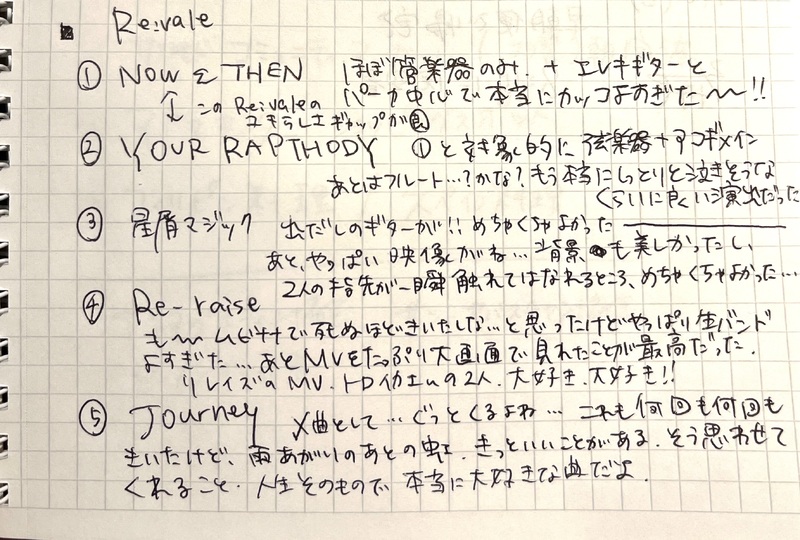 Re:vale
① NOW & THEN ほぼ管楽器のみ. + エレキギターと
パーカ中心で本当にカッコよすぎた〜〜!!
↕ このRe:valeの
ユキらしさギャップが良
② YOUR RAPTHODY ①と対象的に弦楽器+アコギメイン
あとはフルート…?かな? もう本当にしっとりと泣きそうな
くらいに良い演出だった
③ 星屑マジック 出だしのギターが!! めちゃくちゃよかった
あと、やっぱい映像がね… 背景も美しかったし、
2人の指先が一瞬触れてはなれるところ、めちゃくちゃよかった…
④ Re-raise
も〜〜ムビナナで死ぬほどきいたしな…と思ったけどやっぱり生バンド
よすぎた… あとMVをたっぷり大画面で見れたことが最高だった.
リレイズのMV. トロイカエムの2人. 大好き. 大好き!!
⑤ Journey 〆曲として… ぐっとくるよね… これも何回も何回も
きいたけど、雨あがりのあとの虹. きっといいことがある. そう思わせて
くれること. 人生そのもので 本当に大好きな曲だよ.